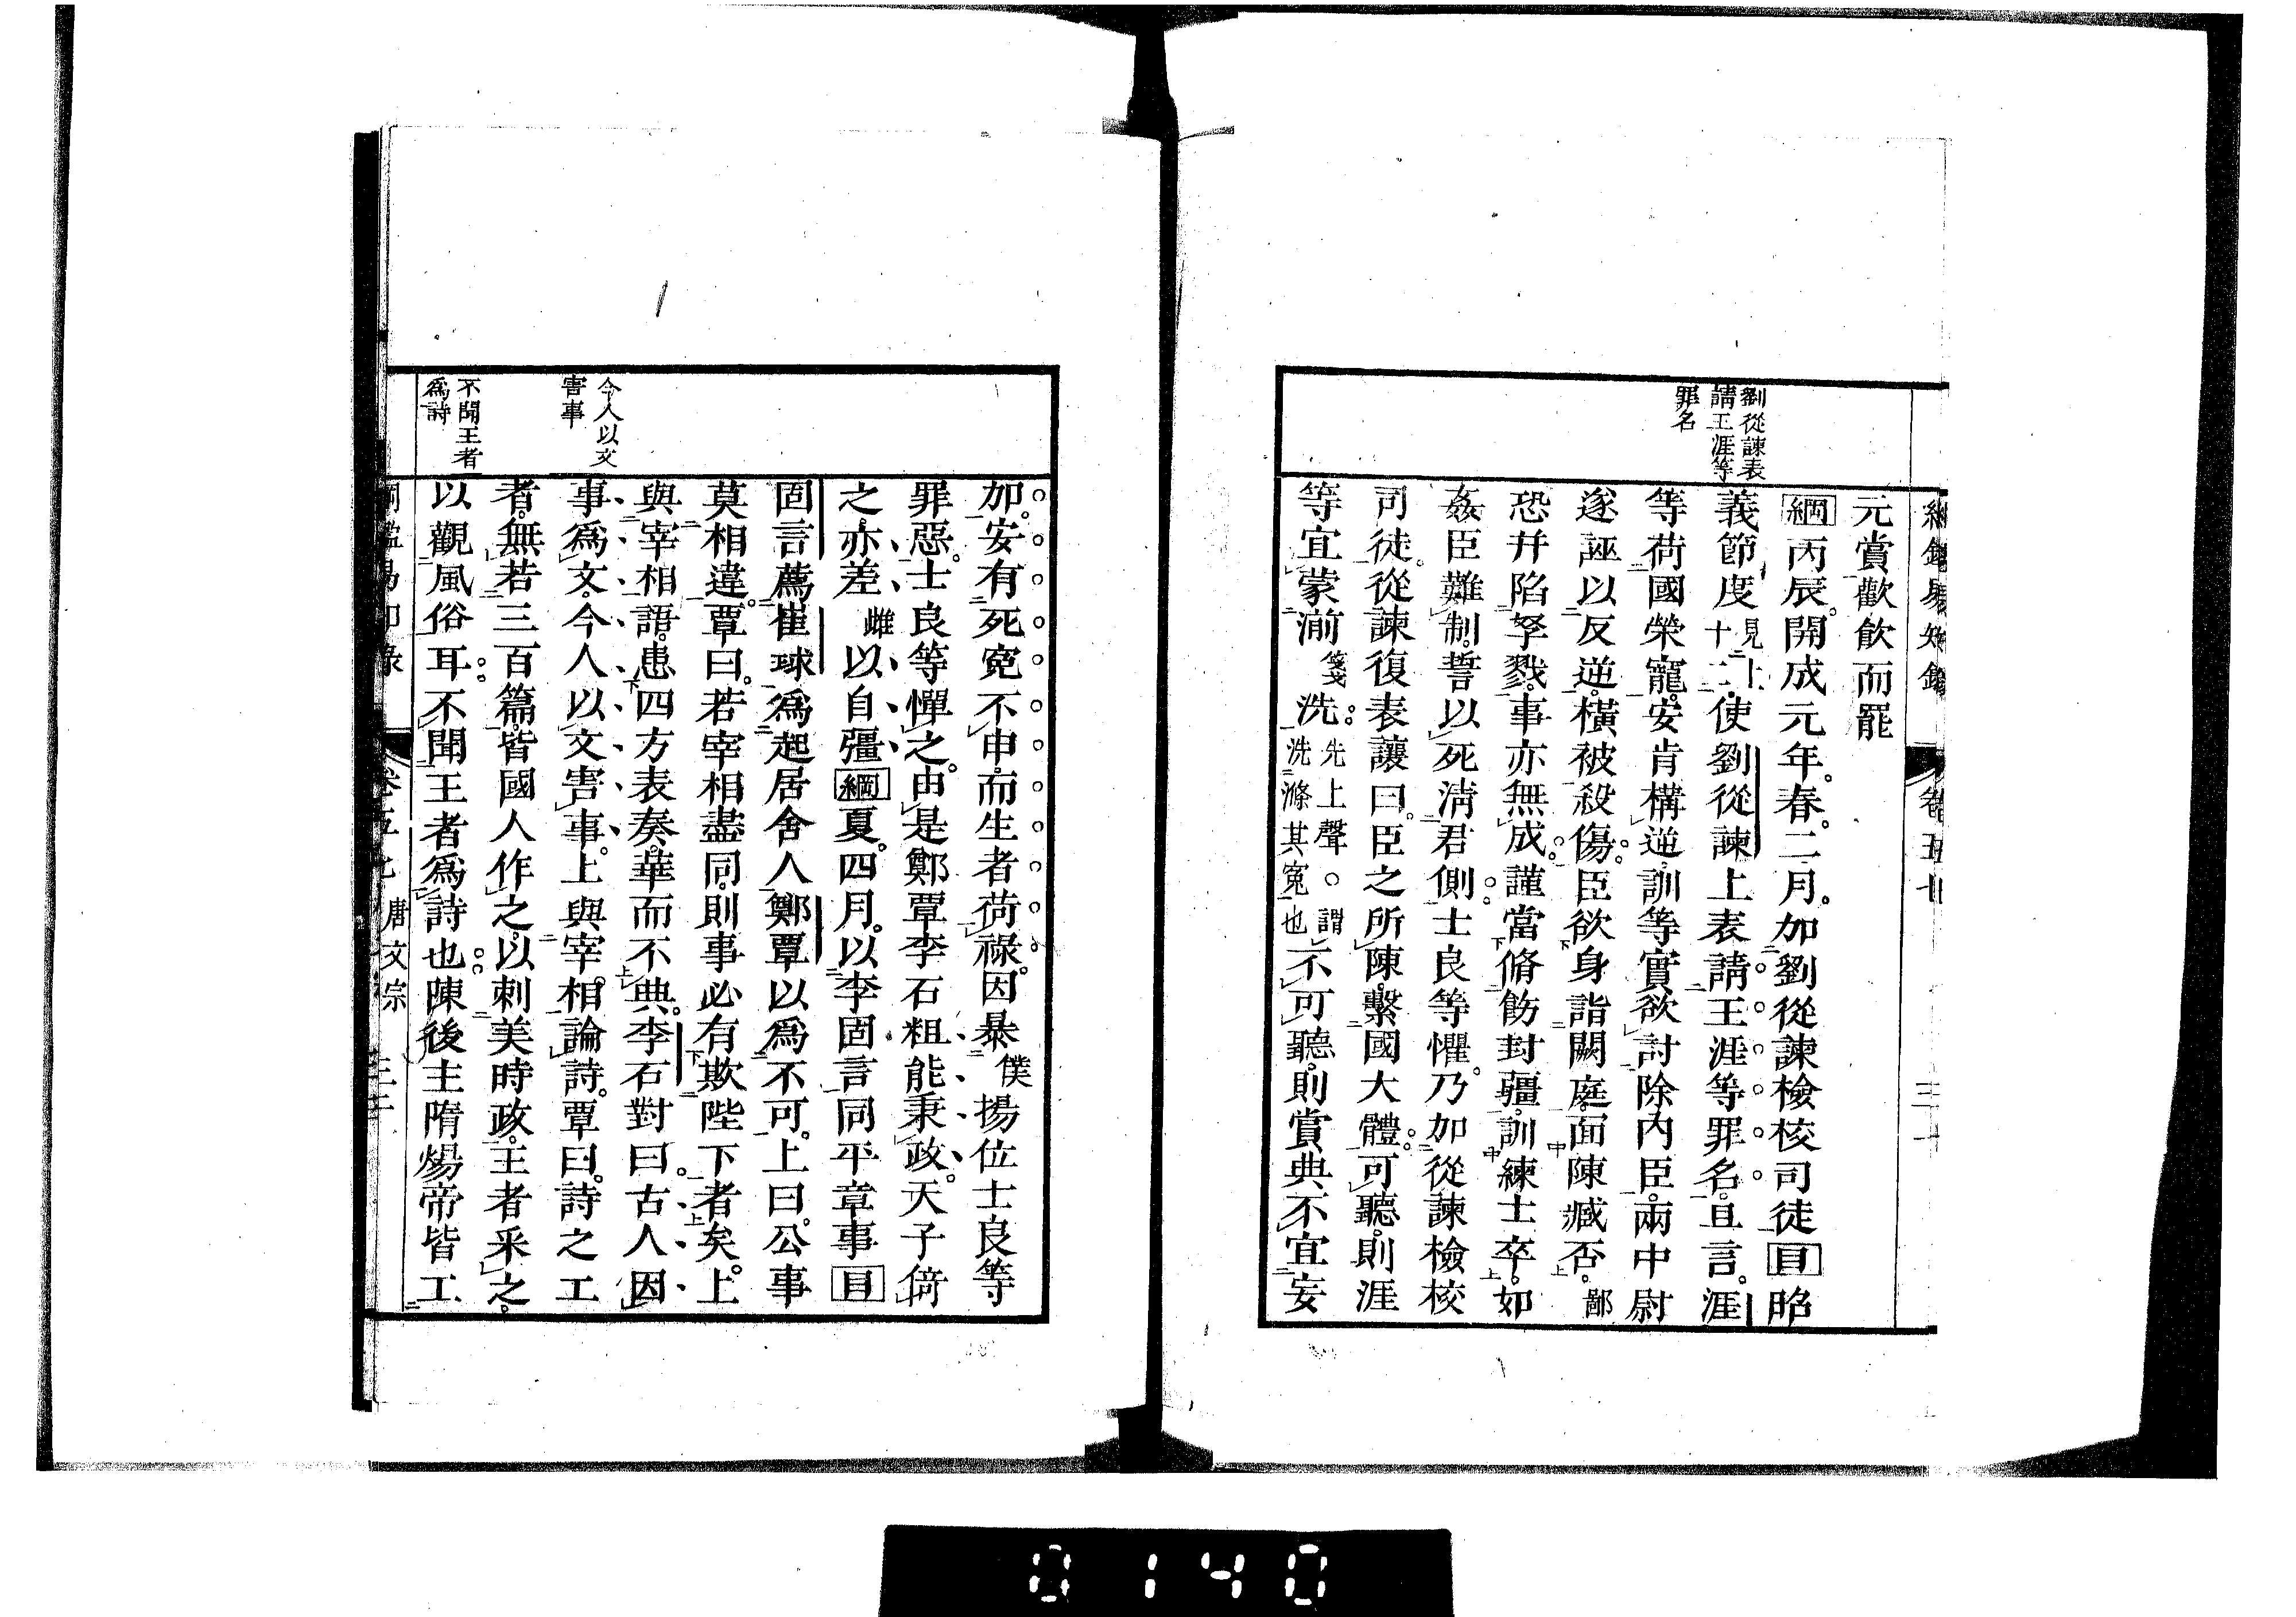 綱鑑易知錄 卷五十
劉從諫表
請王涯等
罪名
元賞歡飲而罷
綱丙辰。開成元年。春。二月。加劉從諫檢校司徒目昭
義節度見上十二使劉從諫上表請王涯等罪名。且言。涯
等荷國榮寵。安肯構逆。訓等實欲討除內臣。兩中尉
遂誣以反逆。橫被殺傷。臣欲身詣闕庭。面陳臧否。鄙
恐幷陷孥戮。事亦無成。謹當脩飭封疆。訓練士卒。如
姦臣難制。誓以死淸君側。士良等懼。乃加從諫檢校
司徒。從諫復表讓曰。臣之所陳。繫國大體。可聽。則涯
等宜蒙湔箋洗。先上聲。謂洗滌其冤也不可聽。則賞典不宜妄
加。安有死冤不申。而生者荷祿。因暴僕揚仇士良等
罪惡。士良等憚之。由是鄭覃李石粗能秉政。天子倚
之。亦差雌以自彊綱夏。四月。以李固言同平章事目
固言薦崔球爲起居舍人。鄭覃以爲不可。上曰。公事
莫相違。覃曰。若宰相盡同。則事必有欺陛下者矣。上
與宰相語。患四方表奏。華而不典。李石對曰。古人因
事爲文。今人以文害事。上與宰相論詩。覃曰。詩之工
者。無若三百篇。皆國人作之。以刺美時政。王者采之。
以觀風俗耳。不聞王者爲詩也。陳後主隋煬帝皆工
今人以文
害事
不聞王者
爲詩
綱鑑易知錄 卷五七 唐文宗
0140